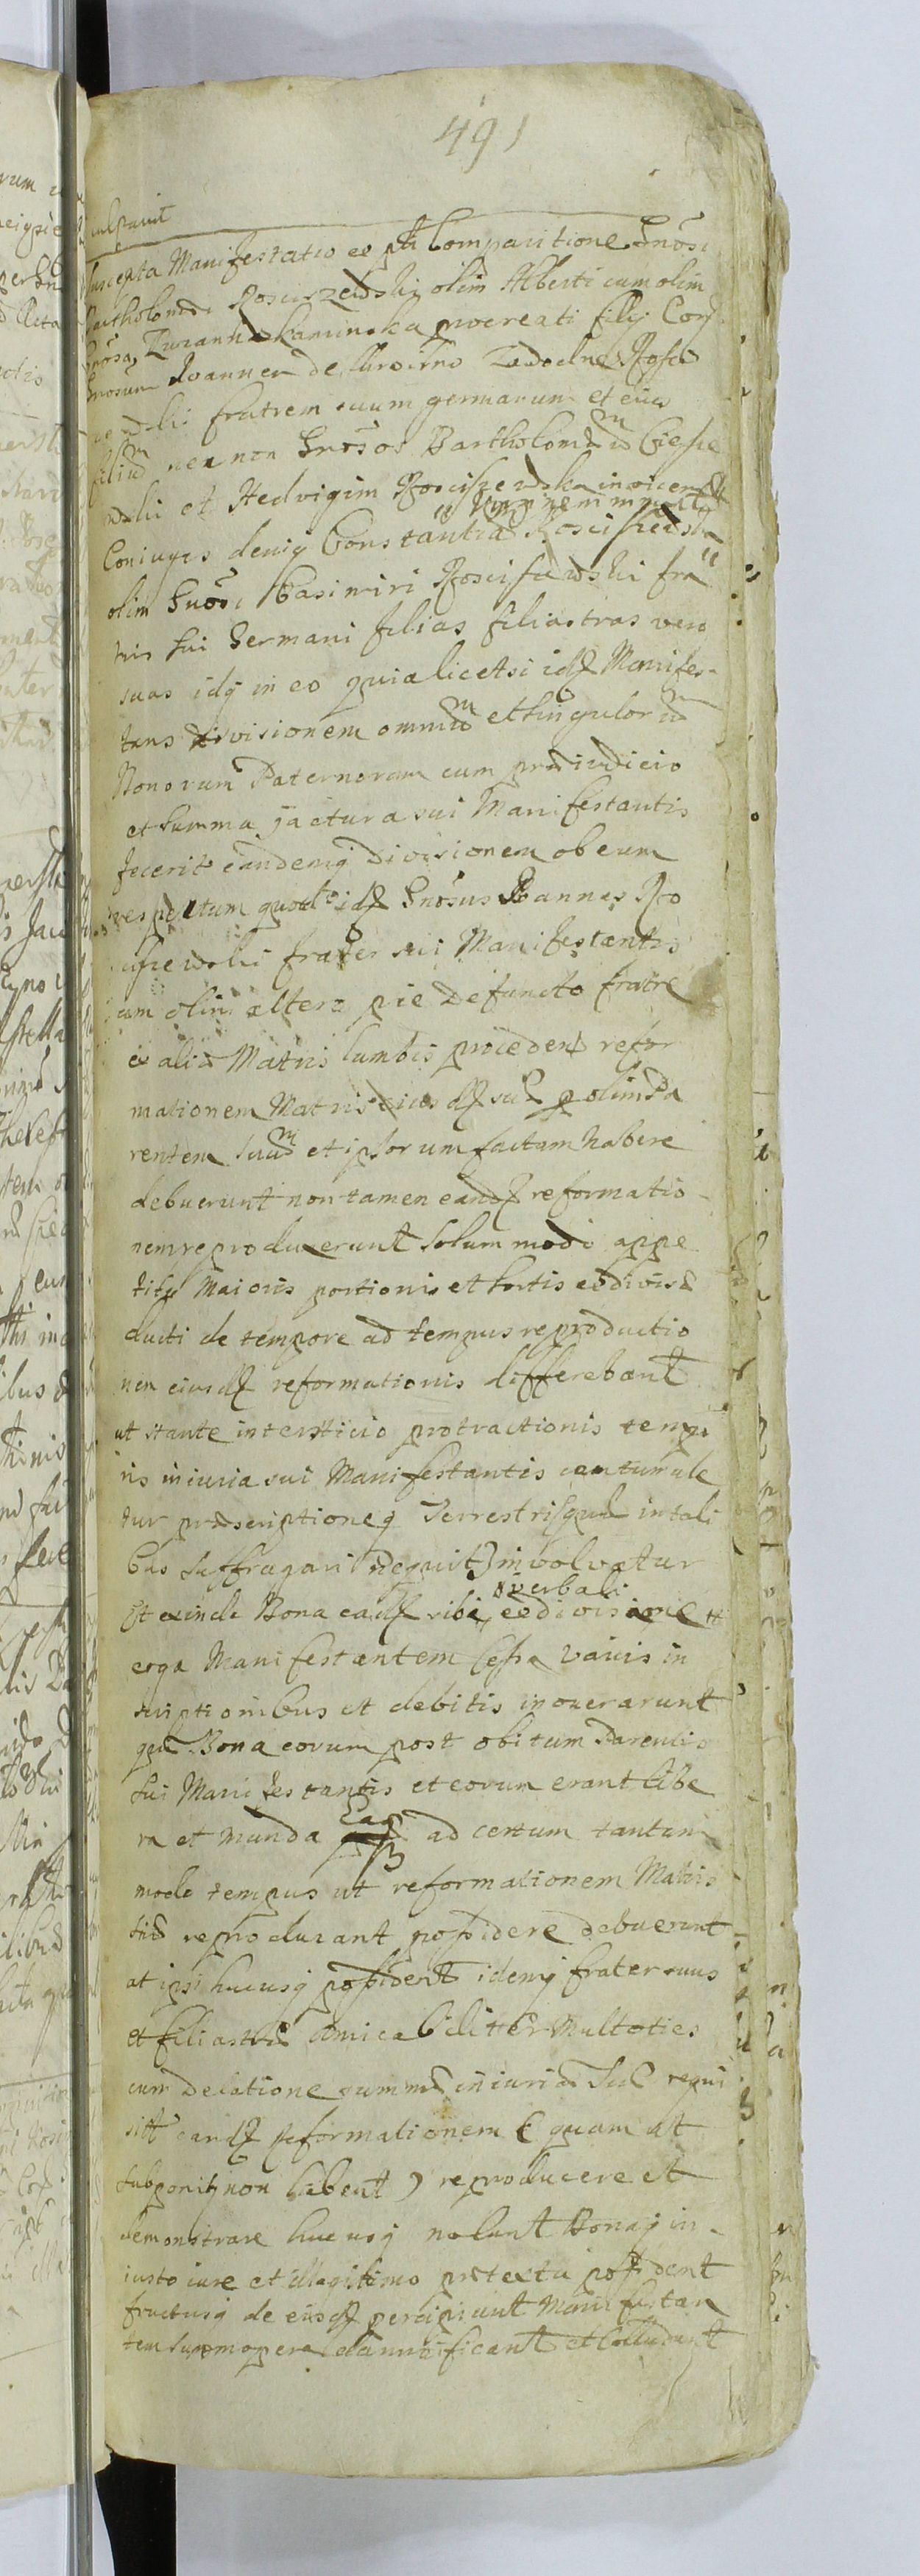 491
culpavit
Suscepta Manifestatio ex psti Comparitione Gnosi
Bartholomæi Rosciszewski olim Alberti cum olim
Gnosa Zuzanna Kaminska procreati filij Con
Gnosum Joannem de Zadoelne Rosci
zewski fratrem suum germanum et eius
filium nec non Gnosos Bartholomæum Ciesie
wski et Hedvigim Rosciszewska invicem
Coniuges deniq Constantia Rosciszewska
olim Gnosi Casimiri Rosciszewski fra
tris sui Germani filias filiastras vero
suas idq in eo quia licet si idq Manifes-
tans divisionem omnium et singulorum
Bonorum Paternorum cum præiudicio
et summa jactura sui Manifestantis
fecerit eandemq Divisionem ob eum
respectum quod idq Gnosus Joannes Ro
sciszewski frater sui Manifestantis
cum olim altero pie defuncto fratre
ex alia Matris lumbis procedens refor
mationem Matris eiusdq suæ p olim Pa
rentem suum et ipsorum factam habere
debuerunt non tamen eandq reformatio
nem reproduxerunt solum modo appe
titu Maioris portionis et sortis ex divisæ
ducti de tempore ad tempus reproductio
nem eiusdq reformationis differebant
ut stante interstitio protractionis tempo
ris iniuria sui Manifestantis centumule
tur præscriptioneq Terrestri quæ in tali
bus suffragari nequit involvatur
Et exinde Bona eadq sibi ex divisione verbali et
erga Manifestantem cessa variis in
scriptionibus et debitis inonerarunt
quæ Bona eorum post obitum Parentis
sui Manifestantis et eorum erant libe
ra et munda Eaq ad certum tantum
modo tempus ut reformationem Matris
suæ reproducant possidere debuerunt
at ipsi hucusq possident idemq frater suus
et filiastræ amicabiliter multoties
cum delatione summæ iniuriæ suæ requi
sitt eandq reformationem (quam ut
supponit non habent) reproducere et
demonstrare hucusq nolunt Bonaq in
iusto iure et illegitimo prætextu possident
fructusq de eisdq percipiunt Manifestan
tem summopere damnificant et colludunt